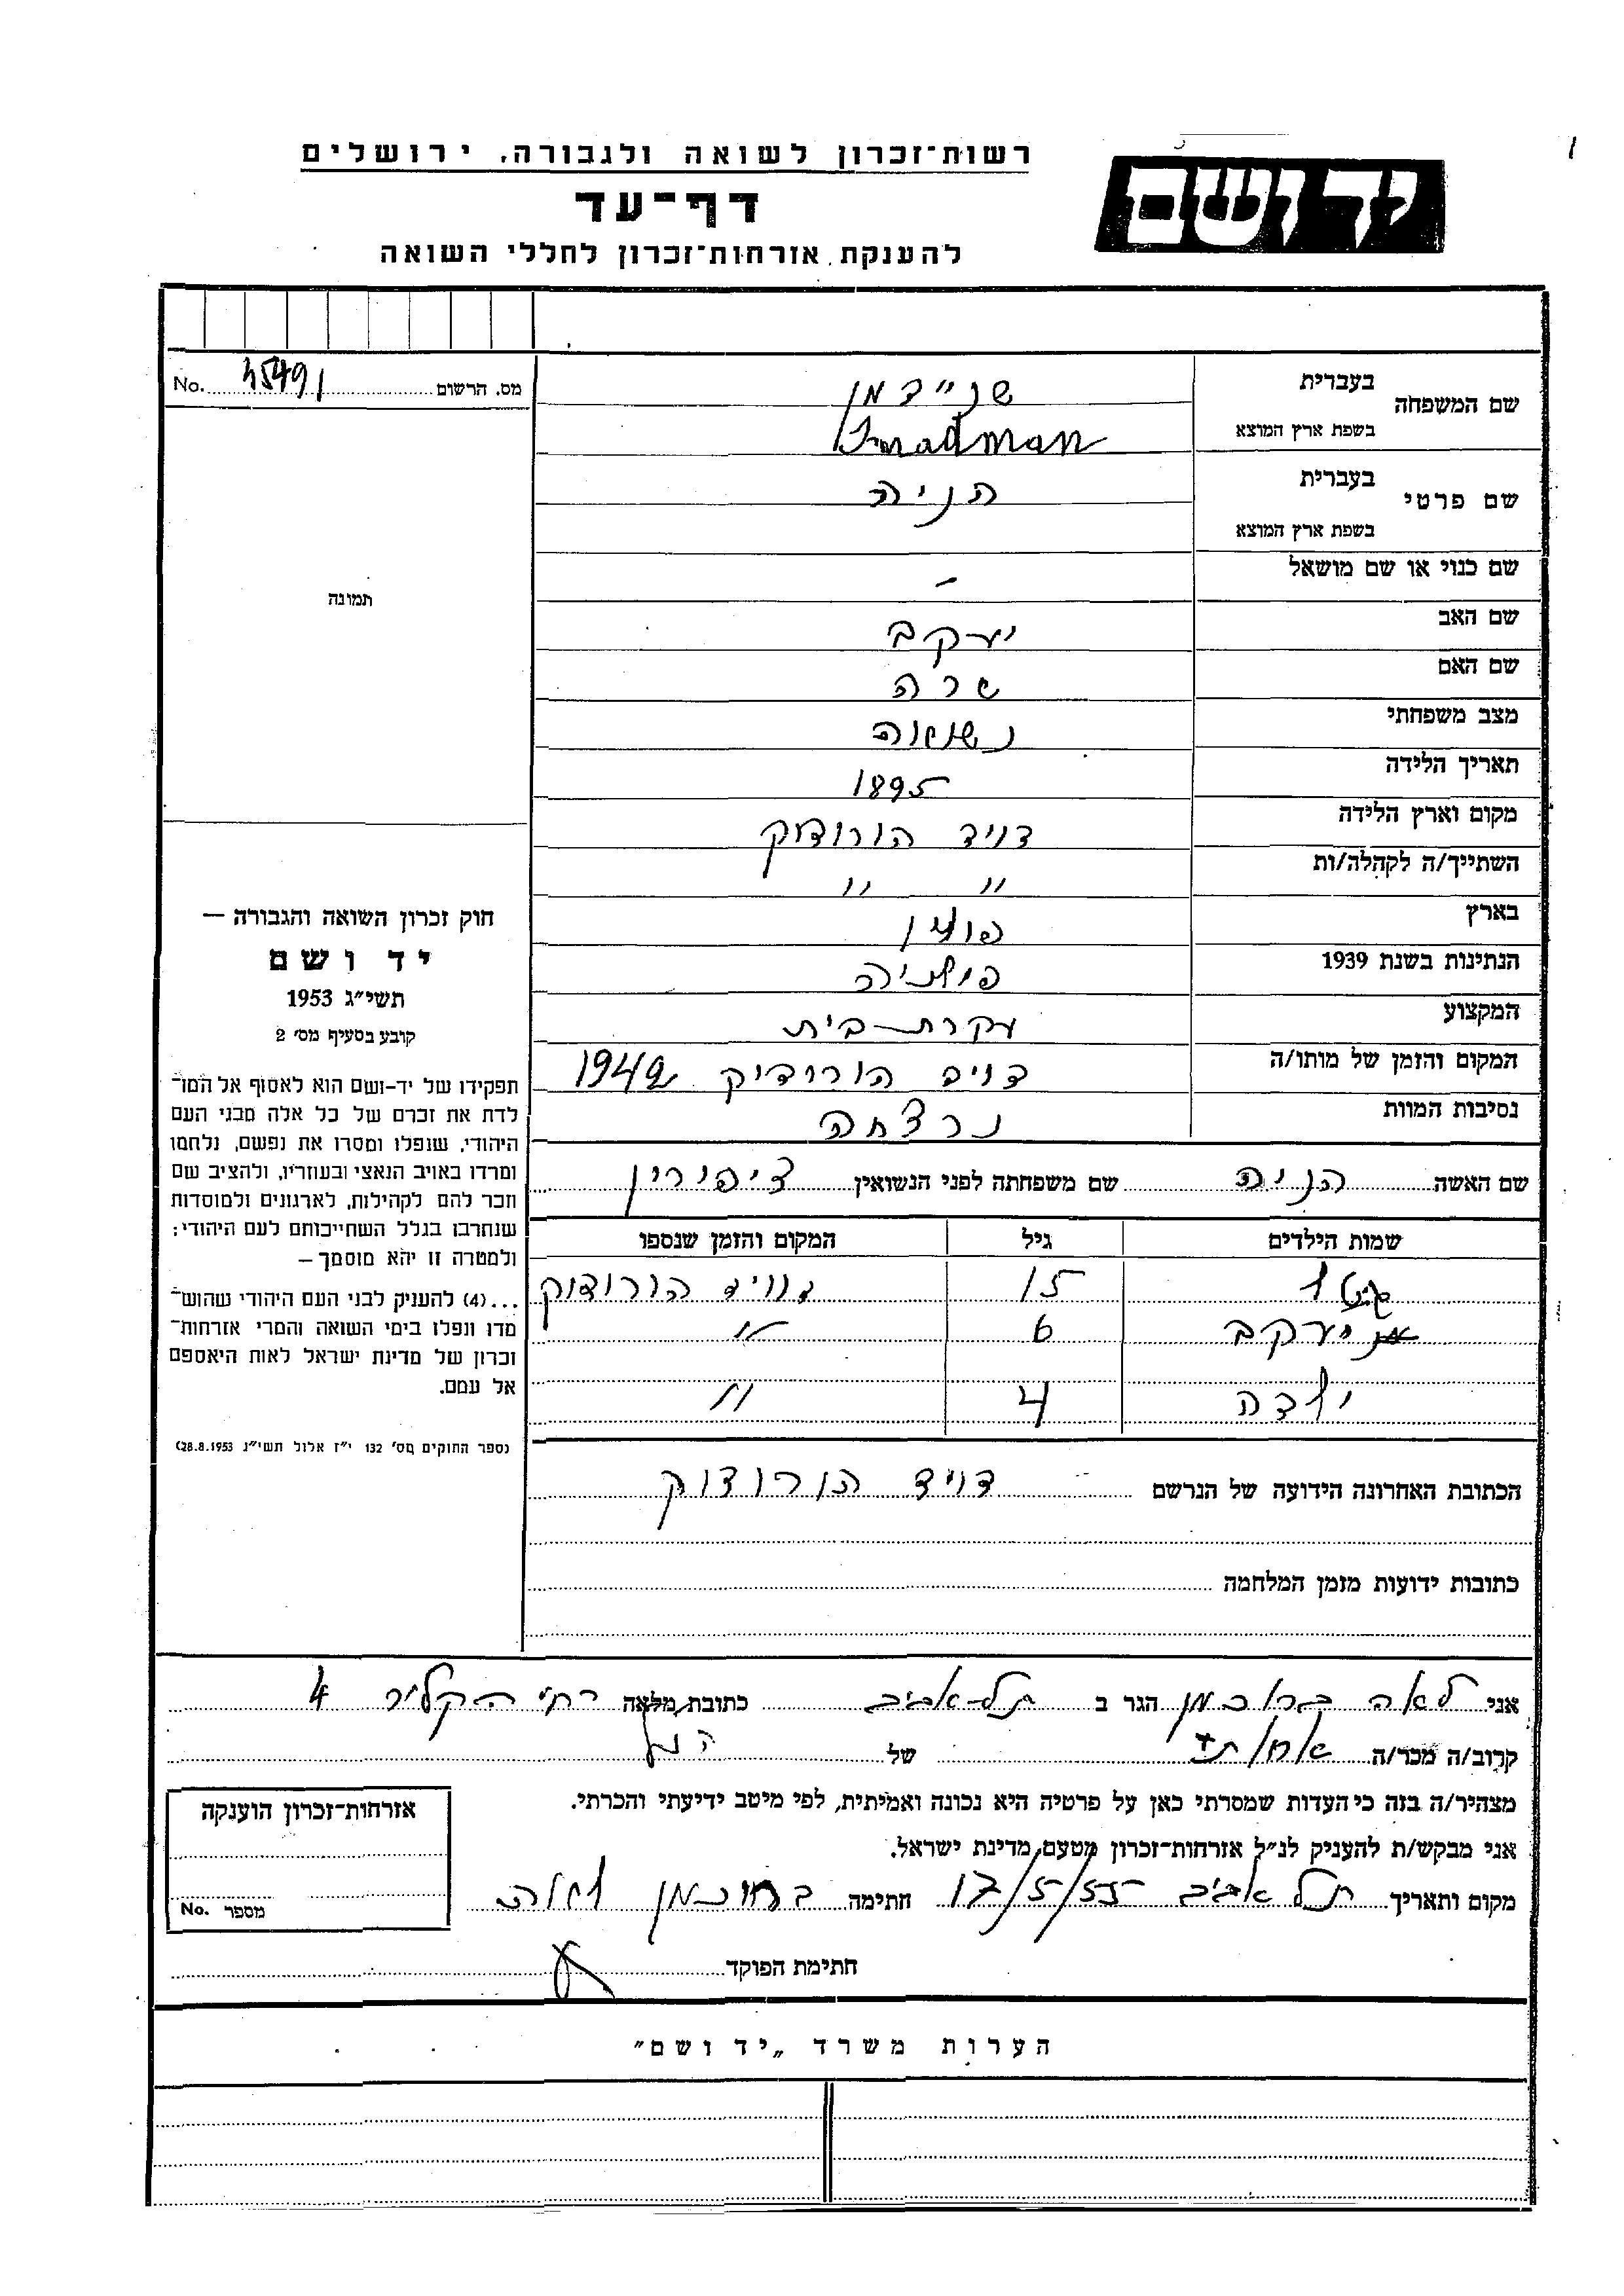 רשות־זכרון לשואה ולגבורה, ירושלים
יד ושם
דף־עד
להענקת אזרחות־זכרון לחללי השואה
מס. הרשום 45491 No.
שם המשפחה
בעברית שניידמן
בשפת ארץ המוצא
שם פרטי
בעברית הניה
בשפת ארץ המוצא
שם כנוי או שם מושאל –
שם האב יעקב
שם האם שרה
מצב משפחתי נשואה
תאריך הלידה 1895
מקום וארץ הלידה דויד הורודוק
השתייך/ה לקהלה/ות " "
בארץ פולין
הנתינות בשנת 1939 פולניה
המקצוע עקרת-בית
המקום והזמן של מותו/ה דויד הורודוק 1942
נסיבות המוות נרצחה
תמונה
חוק זכרון השואה והגבורה —
יד ושם
תשי״ג 1953
קובע בסעיף מס׳ 2
תפקידו של יד-ושם הוא לאסוף אל המו־
לדת את זכרם של כל אלה מבני העם
היהודי, שנפלו ומסרו את נפשם, נלחמו
ומרדו באויב הנאצי ובעוזריו, ולהציב שם
וזכר להם לקהילות, לארגונים ולמוסדות
שנחרבו בגלל השתייכותם לעם היהודי;
ולמטרה זו יהא מוסמך —
...(4) להעניק לבני העם היהודי שהוש־
מדו ונפלו בימי השואה והמרי אזרחות־
זכרון של מדינת ישראל לאות היאספם
אל עמם.
(ספר החוקים מס׳ 132 י״ז אלול תשי״ג 28.8.1953)
שם האשה הניה שם משפחתה לפני הנשואין ציפורין
שמות הילדים גיל המקום והזמן שנספו
15 דוויד הורודוק
יעקב 6 "
4 "
הכתובת האחרונה הידועה של הנרשם דויד הורודוק
כתובות ידועות מזמן המלחמה
אני לאה ברוכמן הגר ב תל-אביב כתובת מלאה רח׳ הקליר 4
קרוב/ה מכר/ה אחותה של הנ״ל
מצהיר/ה בזה כי העדות שמסרתי כאן על פרטיה היא נכונה ואמיתית, לפי מיטב ידיעתי והכרתי.
אני מבקש/ת להעניק לנ״ל אזרחות־זכרון מטעם מדינת ישראל.
מקום ותאריך תל אביב 17/5/55 חתימה ברוכמן לאה
אזרחות־זכרון הוענקה
מספר No.
חתימת הפוקד
הערות משרד „יד ושם״